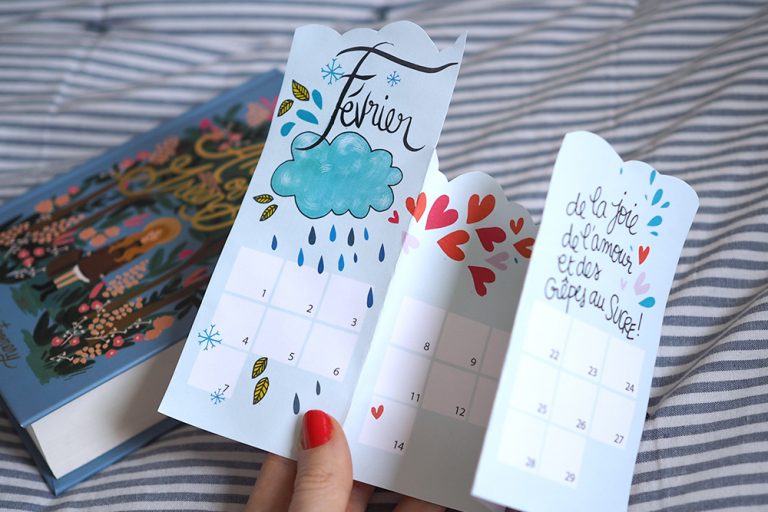 Février
1 2 3
4 5 6
7
8 9
11 12
14
de la joie
de l'amour
et des
Crêpes au Sucre!
22 23 24
25 26 27
28 29